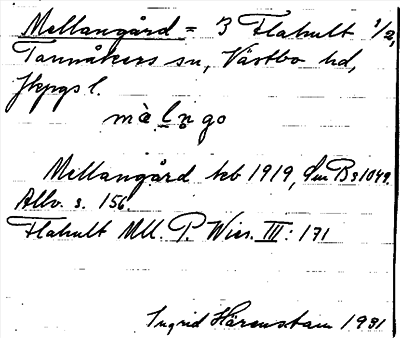 Mellangård = 3 Flahult 1/2,
Tannåkers sn, Västbo hd,
Jkpgs l.
màlngo
Mellangård kb 1919, Bs 1049
Allv. s. 156.
Flahult Mll. P. Wier. III: 171
Ingrid Härenstam 1931